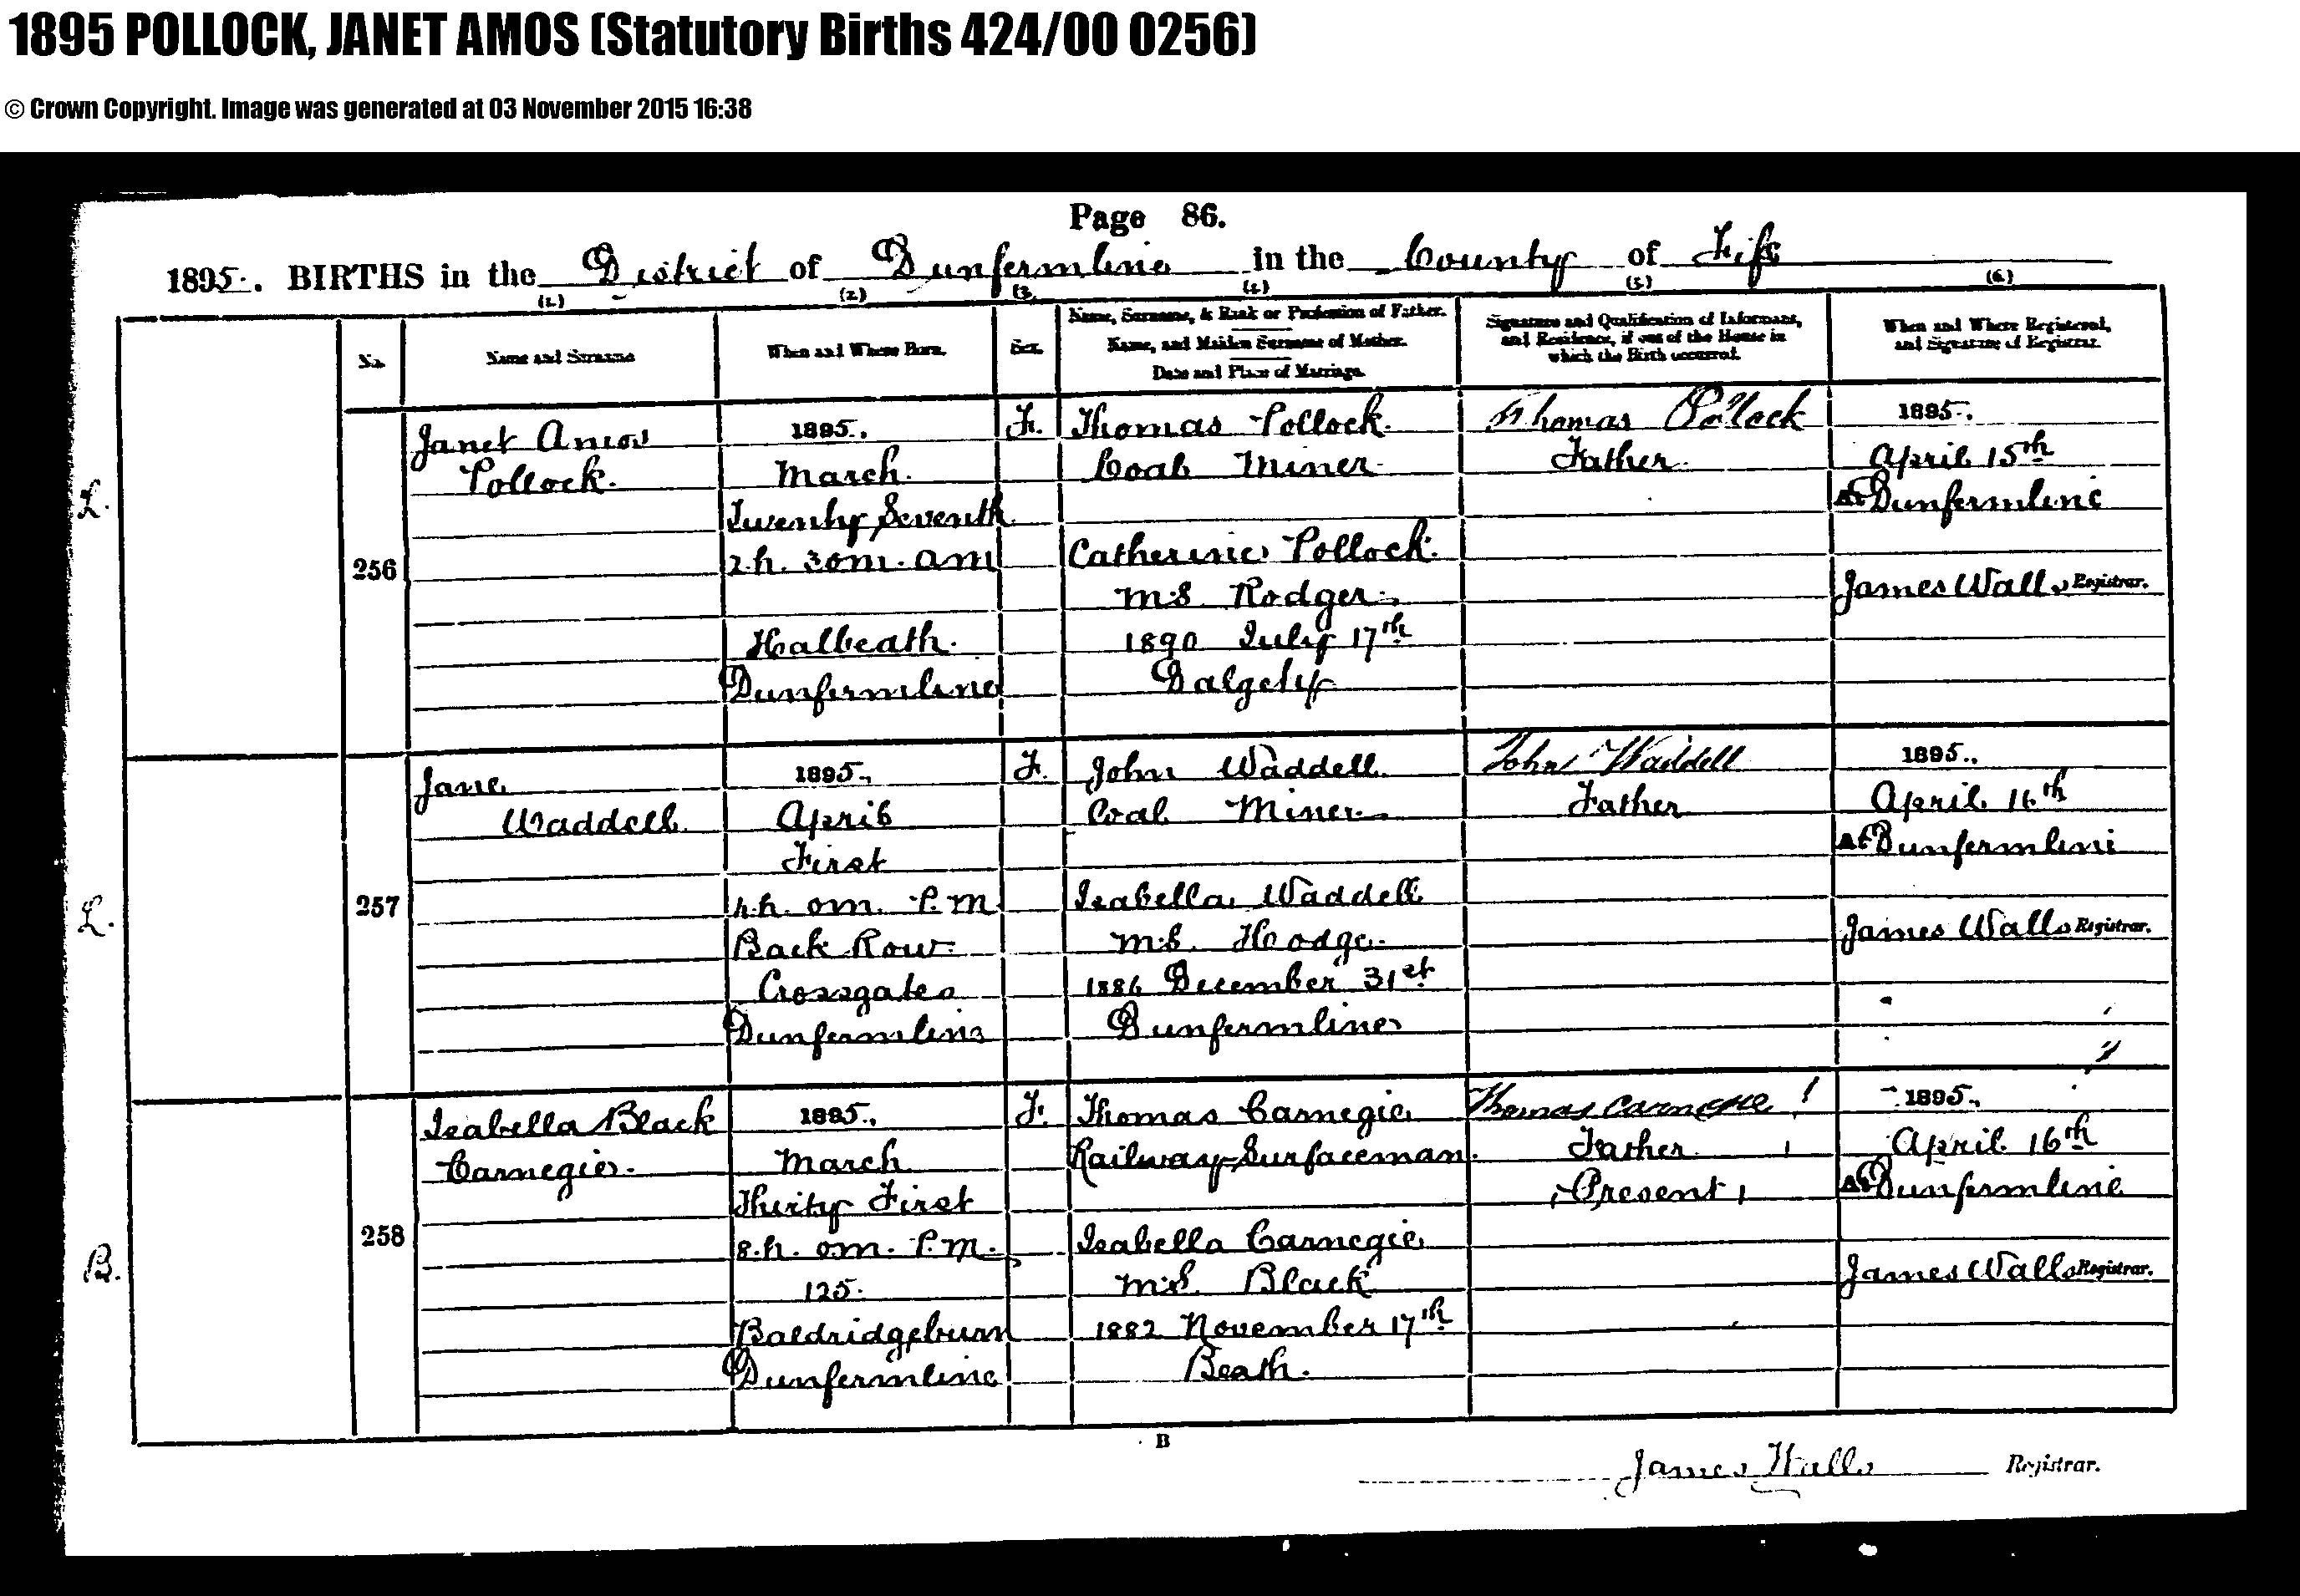 1895 POLLOCK, JANET AMOS (Statutory Births 424/00 0256)
© Crown Copyright. Image was generated at 03 November 2015 16:38
Page 86.
1895. BIRTHS in the District of Dunfermline in the County of Fife
(1.) (2.) (3. (4.) (5.) (6.)
No. Name and Surname When and Where Born. Sex. Name, Surname, & Rank or Profession of Father. Name, and Maiden Surname of Mother. Date and Place of Marriage. Signature and Qualification of Informant, and Residence, if out of the House in which the Birth occurred. When and Where Registered, and Signature of Registrar.
L.
256
Janet Amos
Pollock.
1895.
March.
Twenty Seventh
2.h. 30m. am
Halbeath.
Dunfermline
F.
Thomas Pollock.
Coal Miner
Catherine Pollock.
m.s. Rodger.
1890 July 17th
Dalgety
Thomas Pollock
Father.
1895.
April 15th
At Dunfermline
James Walls Registrar.
L.
257
Jane
Waddell.
1895.
April
First
h. 0m. P.m
Back Row
Crossgates
Dunfermline
F.
John Waddell.
Coal Miner.
Isabella Waddell
m.s. Hodge.
1886 December 31st
Dunfermline
John Waddell
Father
1895.
April 16th
At Dunfermline
James Walls Registrar.
B.
258
Isabella Black
Carnegie.
1895.
March
Thirty First
8.h. 0m. P.m.
125.
Baldridgeburn
Dunfermline
F.
Thomas Carnegie
Railway Surfaceman.
Isabella Carnegie
m.s. Black
1882 November 17th
Beath.
Thomas Carnegie
Father
Present
1895.
April 16th
At Dunfermline
James Walls Registrar.
B
James Walls Registrar.